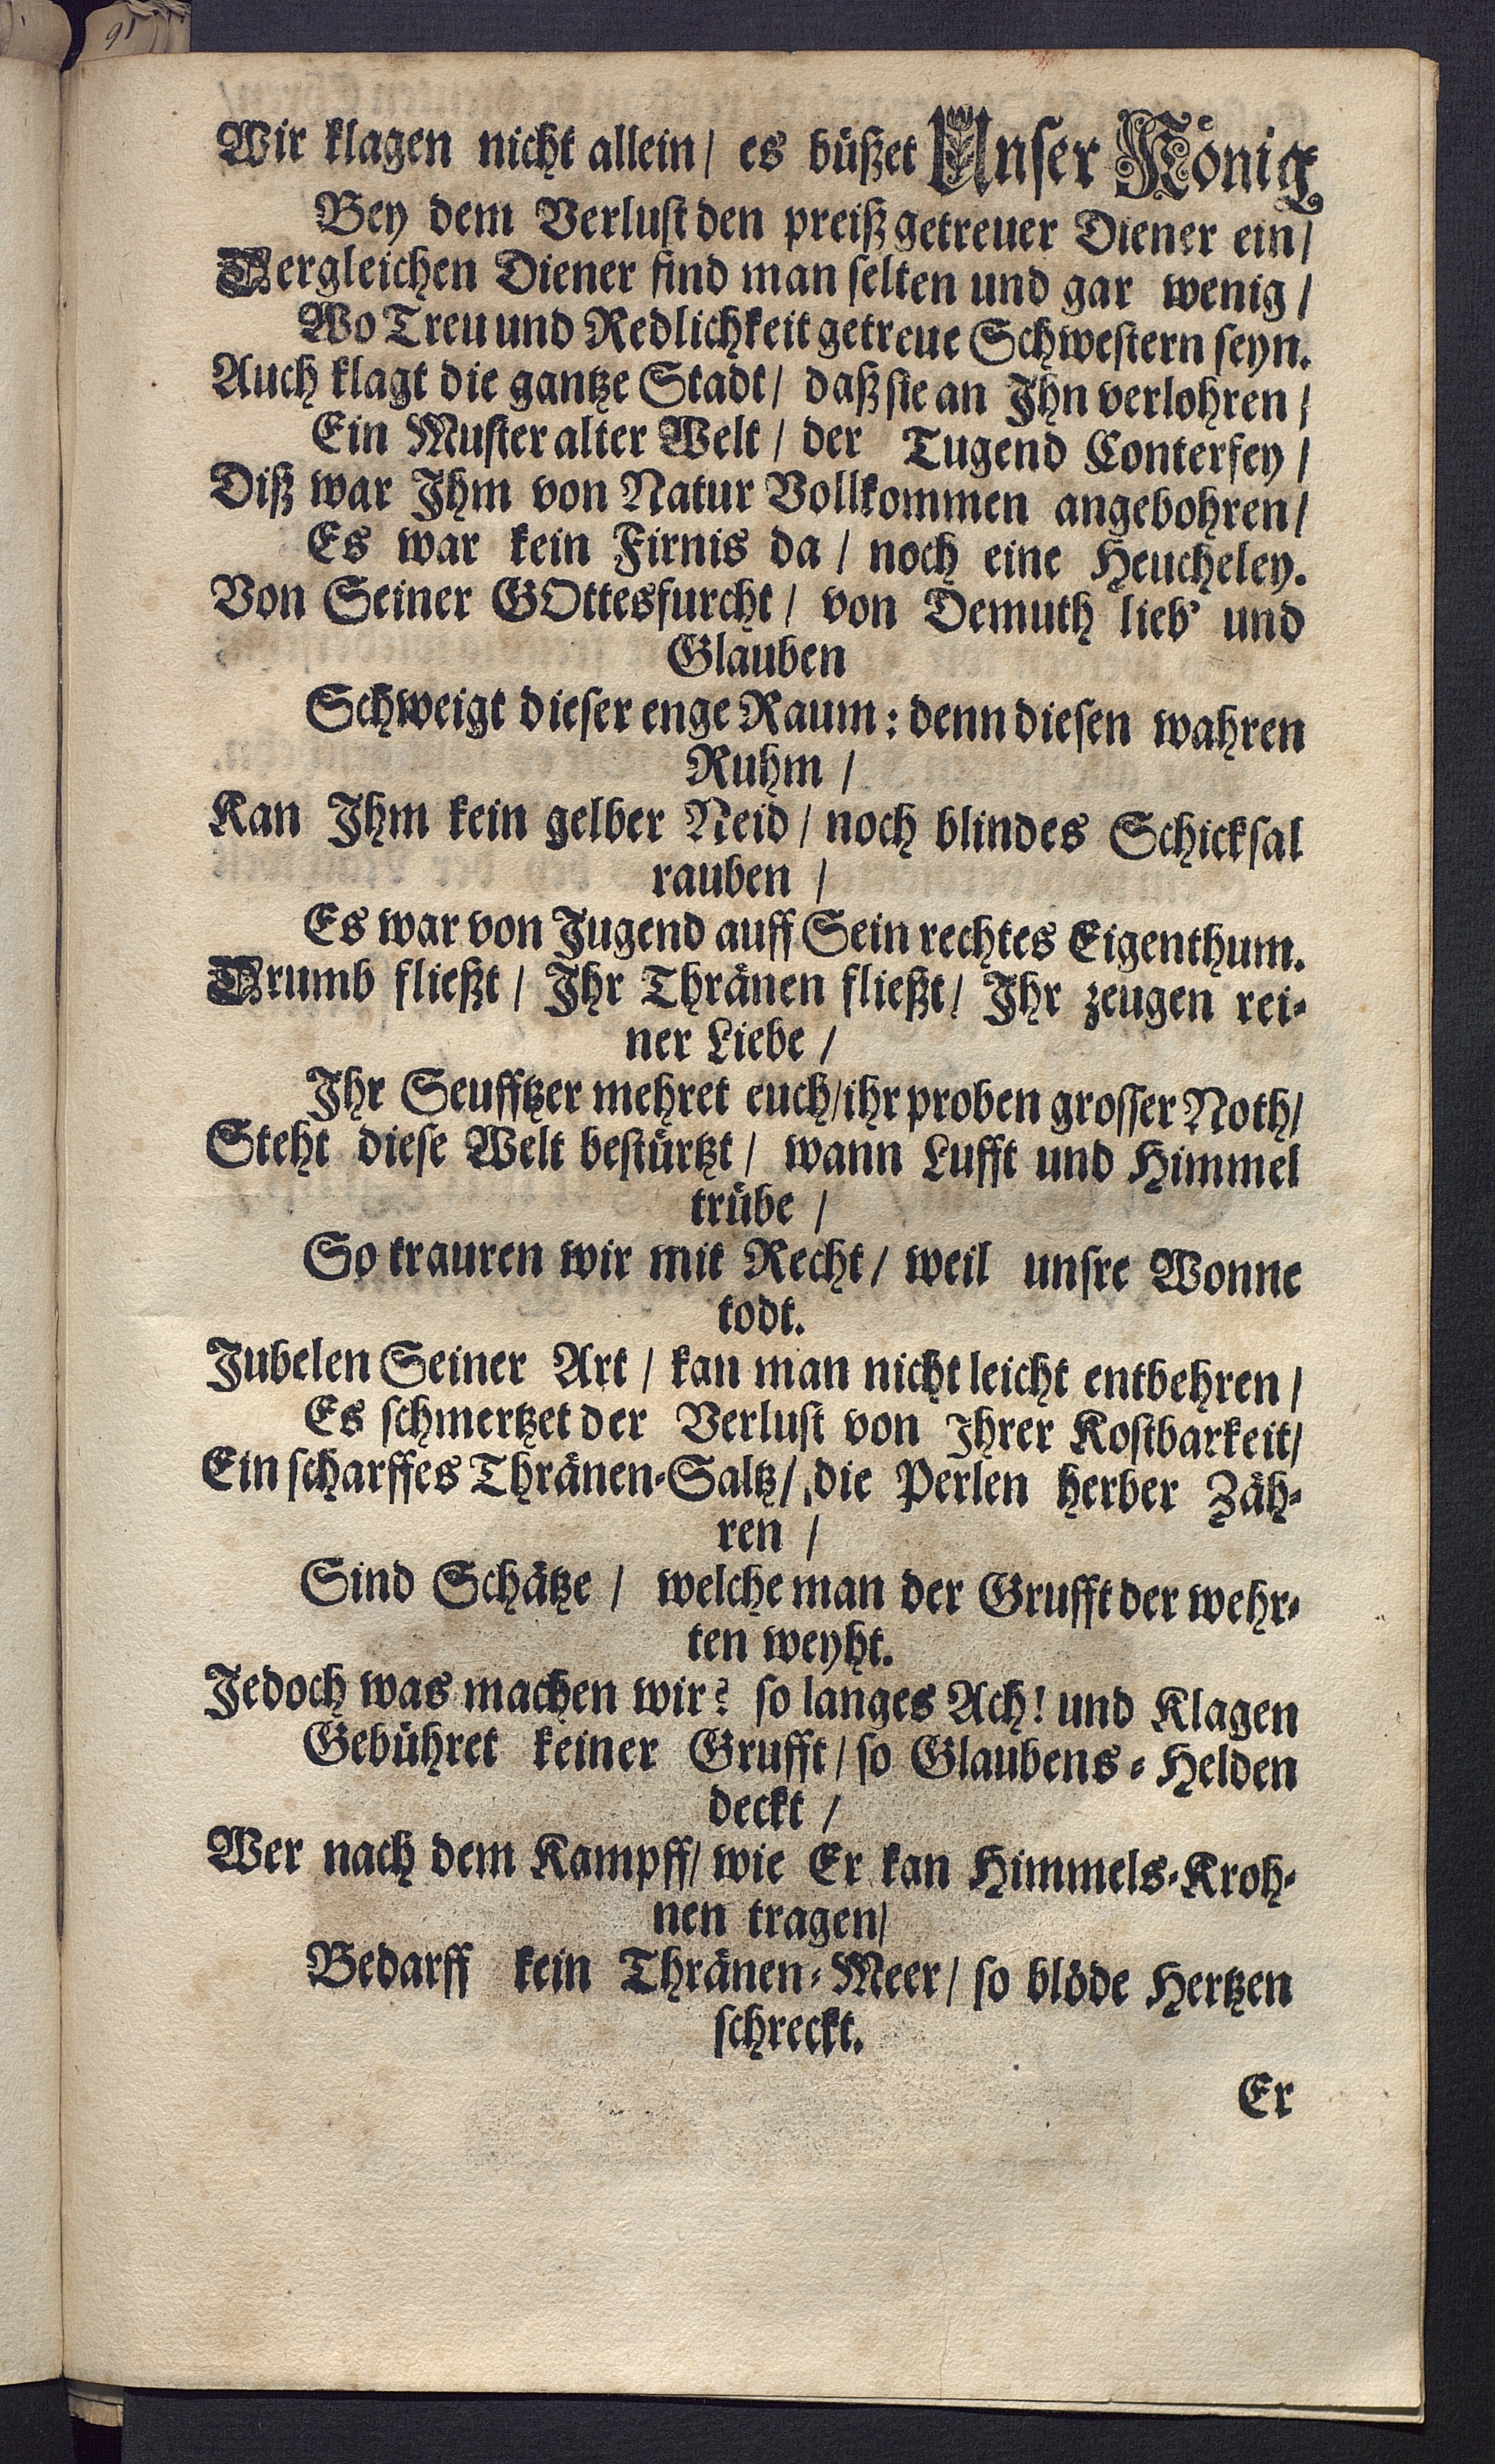 91
Wir klagen nicht allein / es büßet Unser König
Bey dem Verlust den preiß getreuer Diener ein /
Dergleichen Diener find man selten und gar wenig /
Wo Treu und Redlichkeit getreue Schwestern seyn.
Auch klagt die gantze Stadt / daß sie an Ihn verlohren /
Ein Muster alter Welt / der Tugend Conterfey /
Diß war Ihm von Natur Vollkommen angebohren /
Es war kein Firnis da / noch eine Heucheley.
Von Seiner GOttesfurcht / von Demuth lieb' und
Glauben
Schweigt dieser enge Raum: denn diesen wahren
Ruhm /
Kan Ihm kein gelber Neid / noch blindes Schicksal
rauben /
Es war von Jugend auff Sein rechtes Eigenthum.
Drumb fließt / Ihr Thränen fließt / Ihr zeugen rei-
ner Liebe /
Ihr Seufftzer mehret euch / ihr proben grosser Noth /
Steht diese Welt bestürtzt / wann Lufft und Himmel
trübe /
So trauren wir mit Recht / weil unsre Wonne
todt.
Jubelen Seiner Art / kan man nicht leicht entbehren /
Es schmertzet der Verlust von Ihrer Kostbarkeit /
Ein scharffes Thränen-Saltz / die Perlen herber Zäh-
ren /
Sind Schätze / welche man der Grufft der wehr-
ten weyht.
Jedoch was machen wir? so langes Ach! und Klagen
Gebühret keiner Grufft / so Glaubens-Helden
deckt /
Wer nach dem Kampff / wie Er kan Himmels-Kroh-
nen tragen /
Bedarff kein Thränen-Meer / so blöde Hertzen
schreckt.
Er